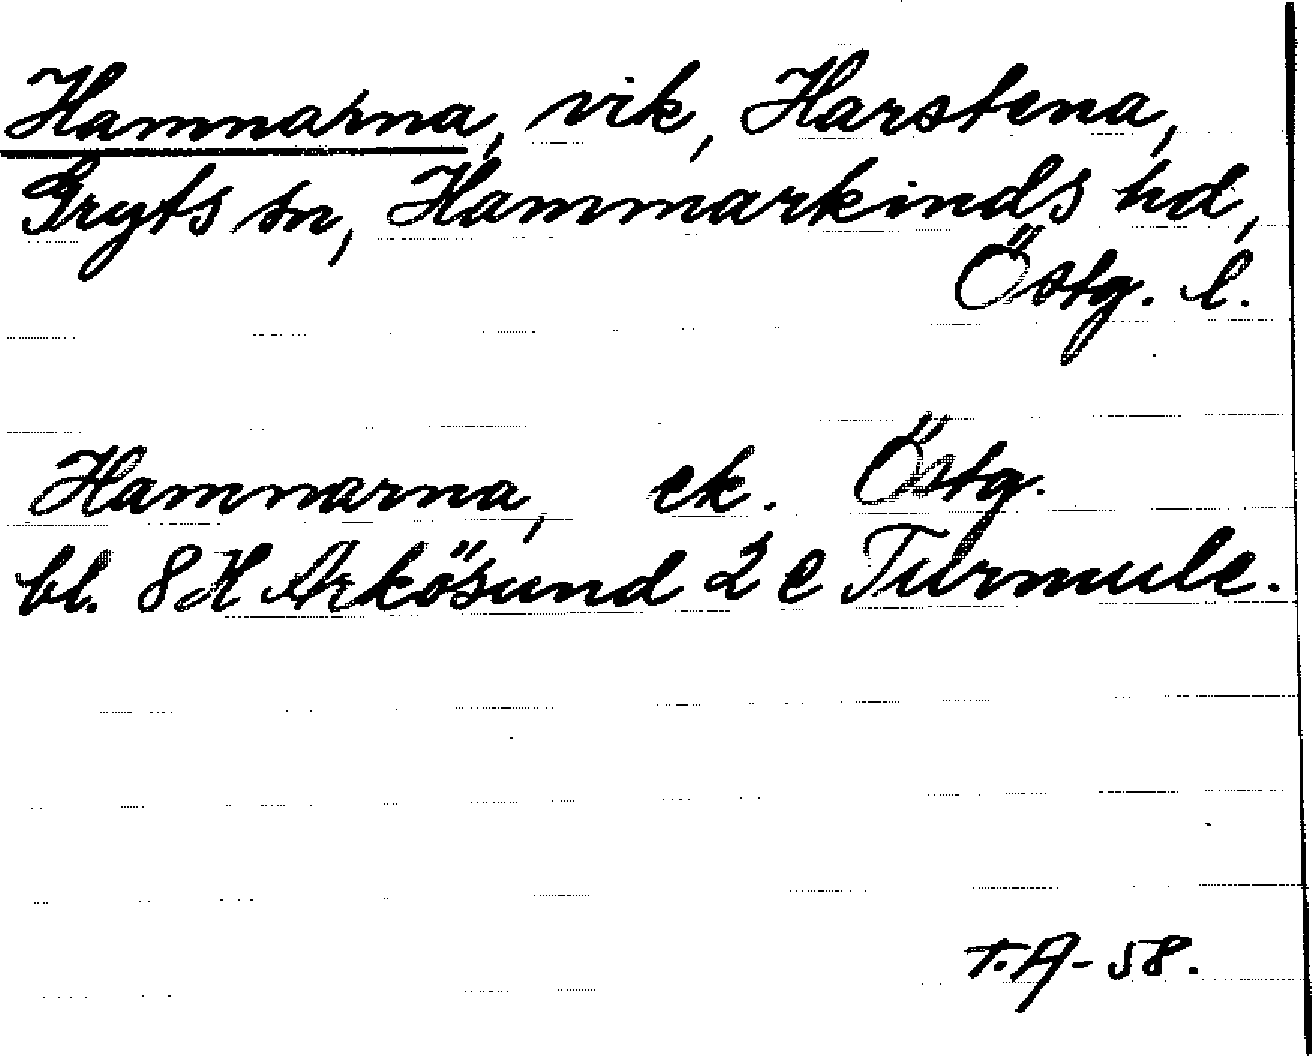 Hamnarna, vik, Harstena,
Gryts sn, Hammarkinds hd,
Östg. l.
Hamnarna, ek. Östg.
bl. 8H Arkösund 2 e Turmule.
T.A-58.